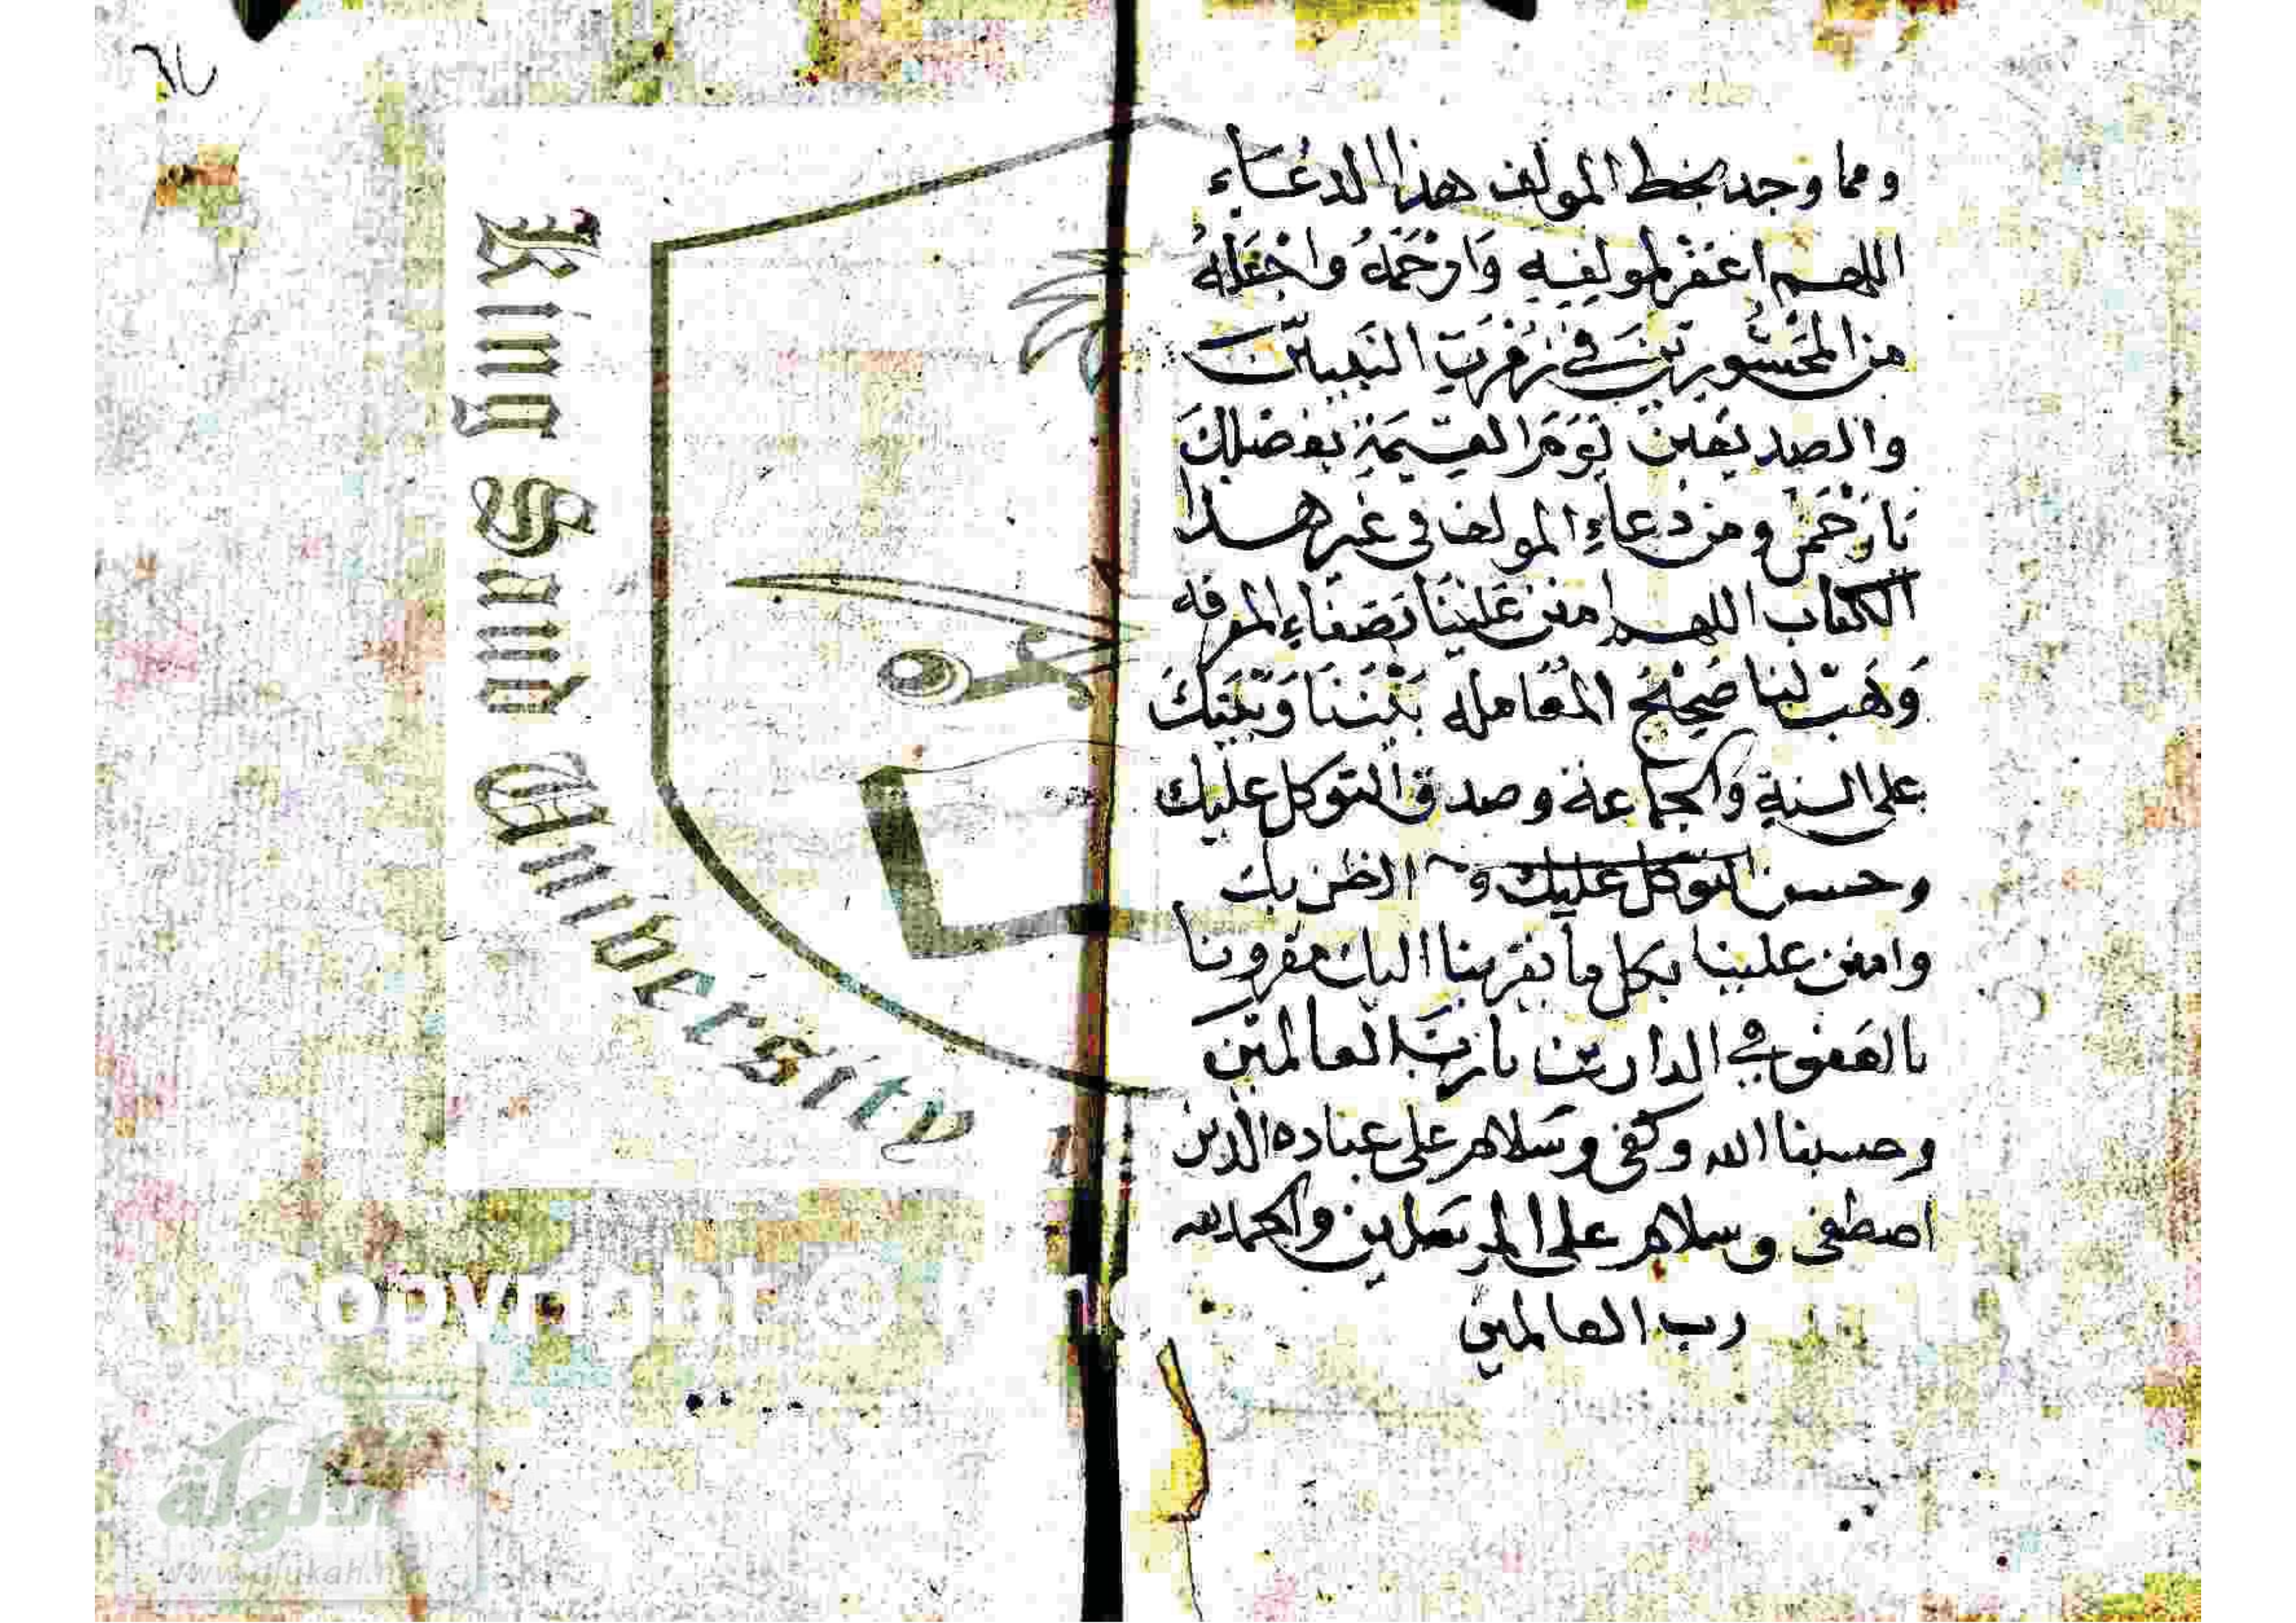 ومما وجد بخط المولف هذا الدعاء
اللهم اغفر لمولفه وارحمه واجعله
من المحشورين في زمرت النبيين
والصديقين يوم القيمة بفضلك
يا رحمن ومن دعاء المولف في غير هذا
الكتاب اللهم امنن علينا بصفاء المعرفه
وهب لنا صحيح المعامله بيننا وبينك
على السنة والجماعة وصدق التوكل عليك
وحسن التوكل عليك و الظن بك
وامنن علينا بكل ما يقربنا اليك مقرونا
بالعفو في الدارين يا رب العالمين
وحسبنا الله وكفى وسلام على عباده الذين
اصطفى وسلام على المرسلين والحمد لله
رب العالمين
King Saud University
Copyright ©
الألوكة
www.alukah.net